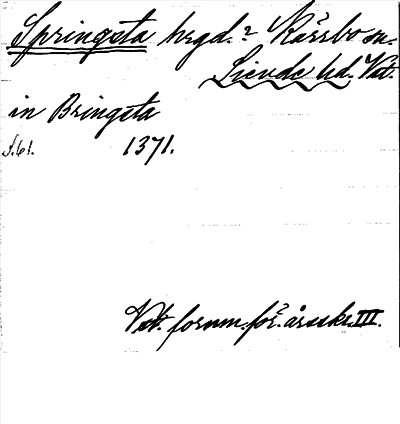 Springsta hrgd.? Kårsbo sn.
Livude hd. Vst.
in Bringsta
s. 61. 1371.
Vst. fornm.för. årsskr. III.